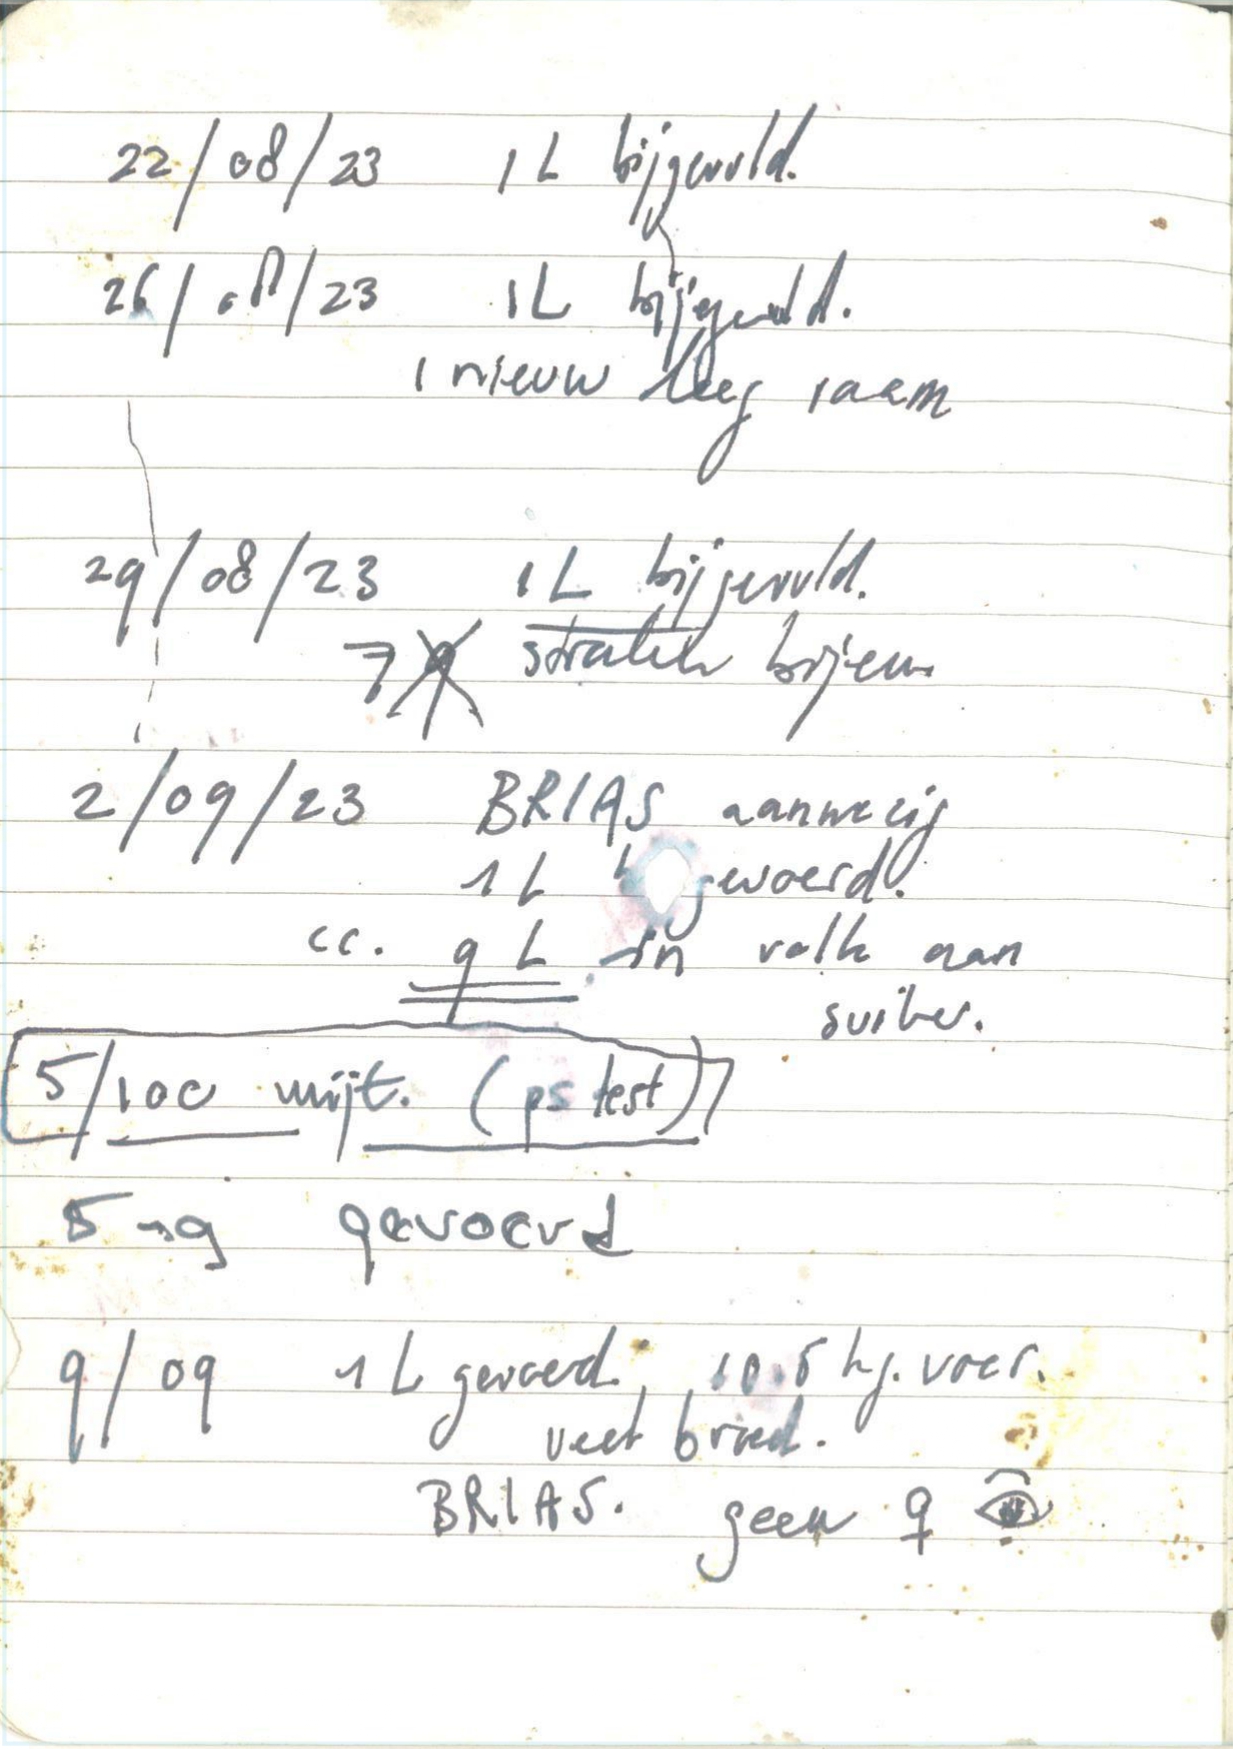 22/08/23 1L bijgevuld.
26/08/23 1L bijgevuld.
1 nieuw leeg raam
29/08/23 1L bijgevuld.
7 straten bijen.
2/09/23 BRIAS aanwezig
1L gevoerd.
cc. 9 L in volk aan
suiker.
5/100 mijt. (ps test)
5 → 9 gevoerd
9/09 1L gevoerd. 10.5 kg. voer.
veel broed.
BRIAS. geen ♀